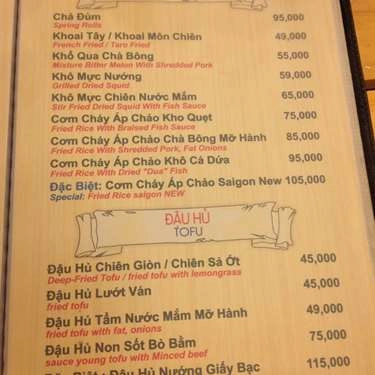 Chả Đùm 95,000
Spring Rolls
Khoai Tây / Khoai Môn Chiên 49,000
French Fried / Taro Fried
Khổ Qua Chà Bông 55,000
Mixture Bitter Melon With Shredded Pork
Khô Mực Nướng 59,000
Grilled Dried Squid
Khô Mực Chiên Nước Mắm 65,000
Stir Fried Dried Squid With Fish Sauce
Cơm Cháy Áp Chảo Kho Quẹt 75,000
Fried Rice With Braised Fish Sauce
Cơm Cháy Áp Chảo Chà Bông Mỡ Hành 85,000
Fried Rice With Shredded Pork, Fat Onions
Cơm Cháy Áp Chảo Khô Cá Dứa 95,000
Fried Rice With Dried "Dua" Fish
Đặc Biệt: Cơm Cháy Áp Chảo Saigon New 105,000
Special: Fried Rice saigon NEW
ĐẬU HỦ
TOFU
Đậu Hủ Chiên Giòn / Chiên Sả Ớt 45,000
Deep-Fried Tofu / fried tofu with lemongrass
Đậu Hủ Lướt Ván 45,000
fried tofu
Đậu Hủ Tẩm Nước Mắm Mỡ Hành 49,000
fried tofu with fat, onions
Đậu Hủ Non Sốt Bò Bằm 75,000
sauce young tofu with Minced beef
Biệt : Đậu Hủ Nướng Giấy Bạc 115,000